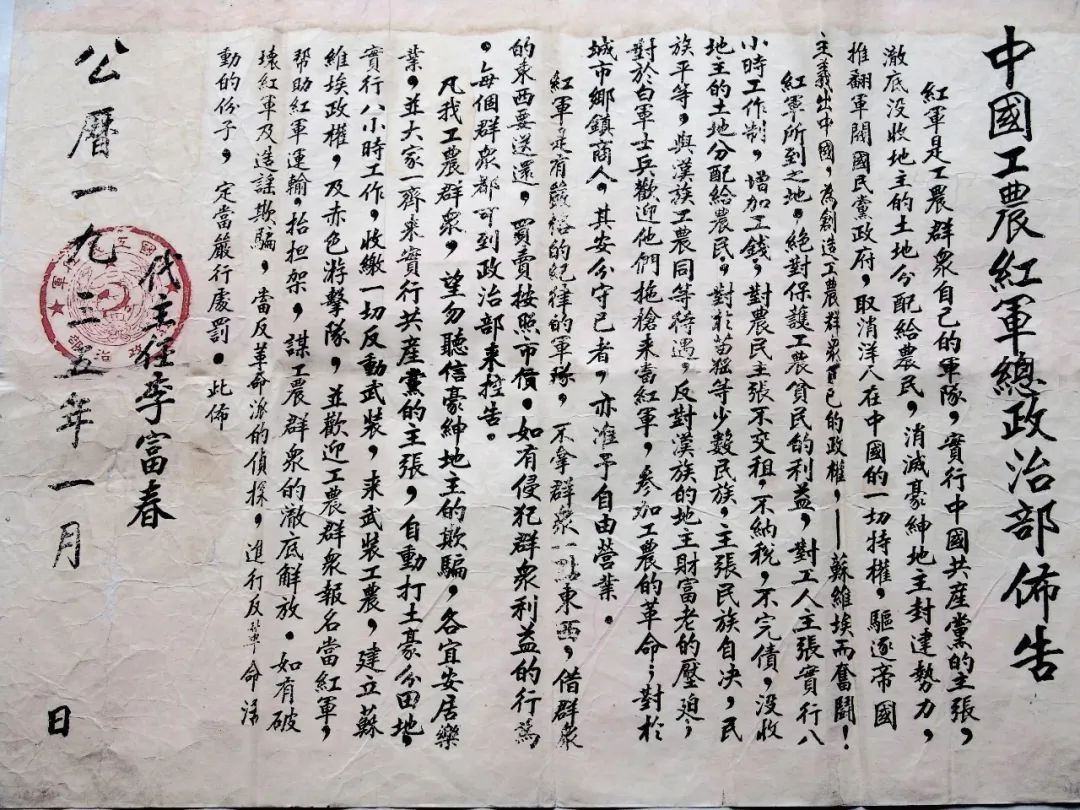 中國工農紅軍總政治部佈告
紅軍是工農群眾自己的軍隊，實行中國共産黨的主張，
澈底没收地主的土地分配給農民，消滅豪紳地主封建勢力，
推翻軍閥國民黨政府，取消洋人在中國的一切特權，驅逐帝國
主義出中國，為創造工農群眾自己的政權，——蘇維埃而奮鬪！
紅軍所到之地，絕對保護工農貧民的利益，對工人主張實行八
小時工作制，增加工錢，對農民主張不交租，不納税，不完債，没收
地主的土地分配給農民。對於苗猺等少數民族，主張民族自決，民
族平等，與漢族工農同等待遇，反對漢族的地主財富老的壓迫，
對於白軍士兵歡迎他們拖槍來當紅軍，參加工農的革命；對於
城市鄉鎮商人，其安分守己者，亦准予自由營業。
紅軍是有嚴格的紀律的軍隊，不拿群眾一點東西，借群眾
的東西要送還，買賣按照市價。如有侵犯群眾利益的行為
，每個群眾都可到政治部來控告。
凡我工農群眾，望勿聽信豪紳地主的欺騙，各宜安居樂
業，並大家一齊來實行共産黨的主張，自動打土豪分田地，
實行八小時工作，收繳一切反動武装，來武装工農，建立蘇
維埃政權，及赤色游擊隊，並歡迎工農群眾報名當紅軍，
帮助紅軍運輸，抬担架，謀工農群眾的澈底解放。如有破
壞紅軍及造謡欺騙，當反革命派的偵探，進行反革命活
動的份子，定當嚴行處罰。此佈
代主任李富春
公曆一九三五年一月 日
政治部